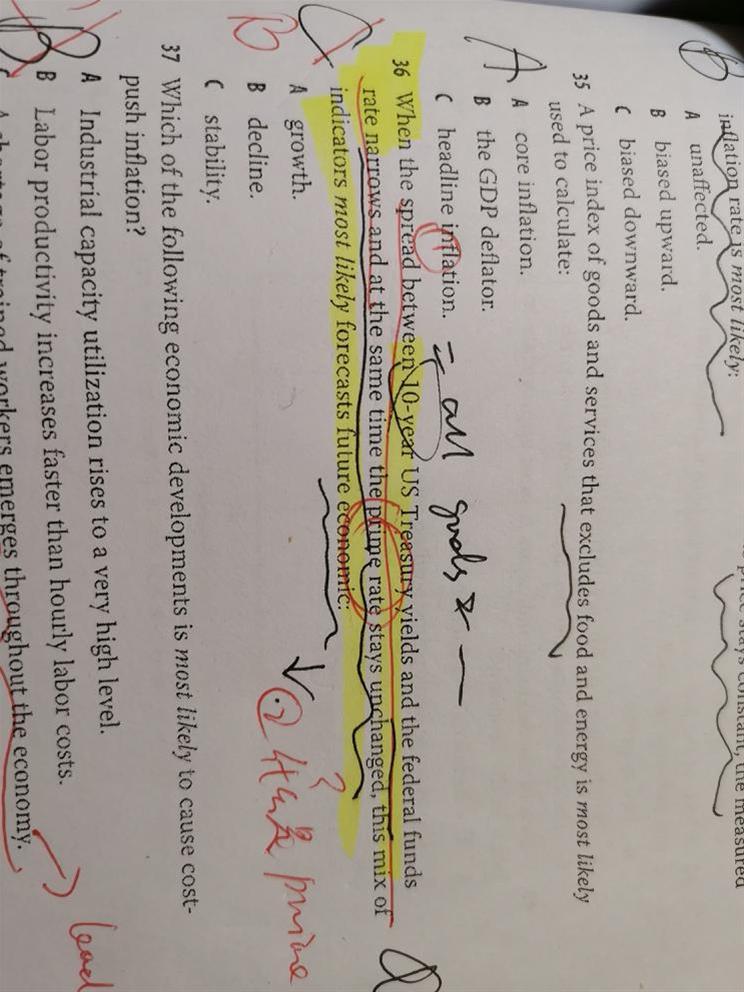 price stays constant, the measured
inflation rate is most likely:
A unaffected.
B biased upward.
C biased downward.
35 A price index of goods and services that excludes food and energy is most likely
used to calculate:
A
A core inflation.
B the GDP deflator.
C headline inflation. = all goods
36 When the spread between 10-year US Treasury yields and the federal funds
rate narrows and at the same time the prime rate stays unchanged, this mix of
indicators most likely forecasts future economic:
B
A growth.
B decline.
C stability.
prime
37 Which of the following economic developments is most likely to cause cost-
push inflation?
A Industrial capacity utilization rises to a very high level.
B Labor productivity increases faster than hourly labor costs.
C A shortage of trained workers emerges throughout the economy.
lead